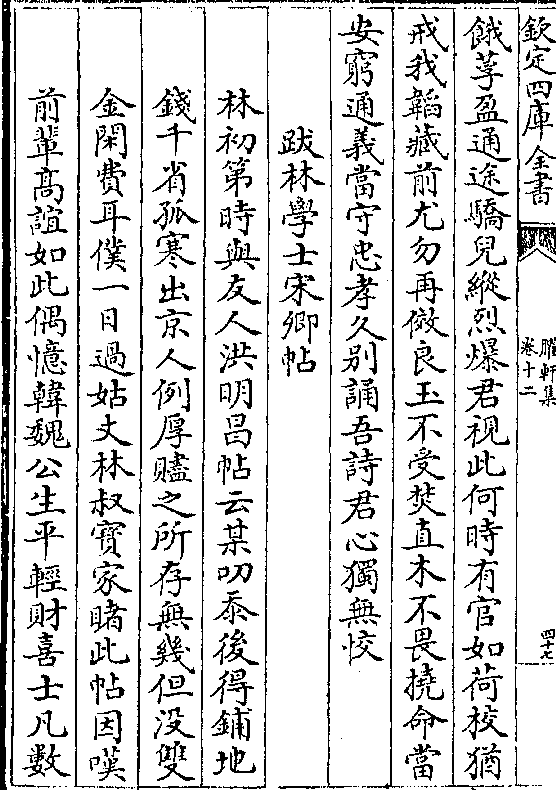 欽定四庫全書
臞軒集
卷十二
四十七
餓莩盈通途驕兒縱烈爆君視此何時有官如荷校猶
戒我韜藏前尤勿再傚良玉不受焚直木不畏撓命當
安窮通義當守忠孝久别誦吾詩君心獨無恔
跋林學士宋卿帖
林初第時與友人洪明昌帖云某叨忝後得鋪地
錢千省孤寒出京人例厚贐之所存無幾但没雙
金閑費耳僕一日過姑丈林叔寶家睹此帖因嘆
前輩高誼如此偶憶韓魏公生平輕財喜士凡數